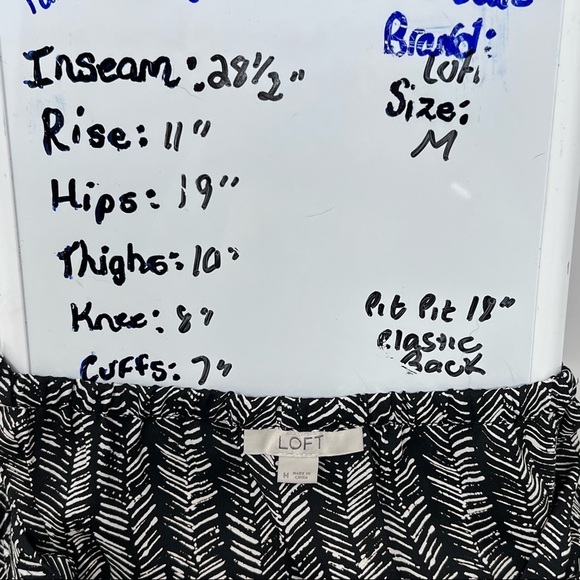 Brand:
Loft
Inseam: 28 1/2"
Size:
M
Rise: 11"
Hips: 19"
Thighs: 10"
Knee: 8"
Cuffs: 7"
Pit Pit 18"
Elastic
Back
LOFT
M
MADE IN
CHINA